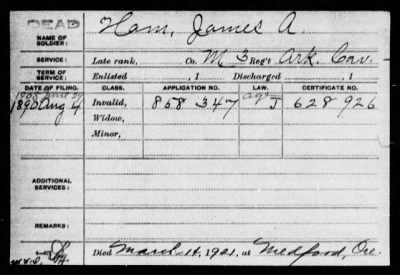 DEAD
NAME OF SOLDIER: Ham, James A.
SERVICE: Late rank, Co. M 3 Reg't Ark. Cav.
TERM OF SERVICE: Enlisted , 1 Discharged , 1
DATE OF FILING. CLASS. APPLICATION NO. LAW. CERTIFICATE NO.
1890 Aug 4 Invalid, 858 347 J 628 926
Widow,
Minor,
ADDITIONAL SERVICES:
REMARKS:
Died March 11, 1921, at Medford, Ore.